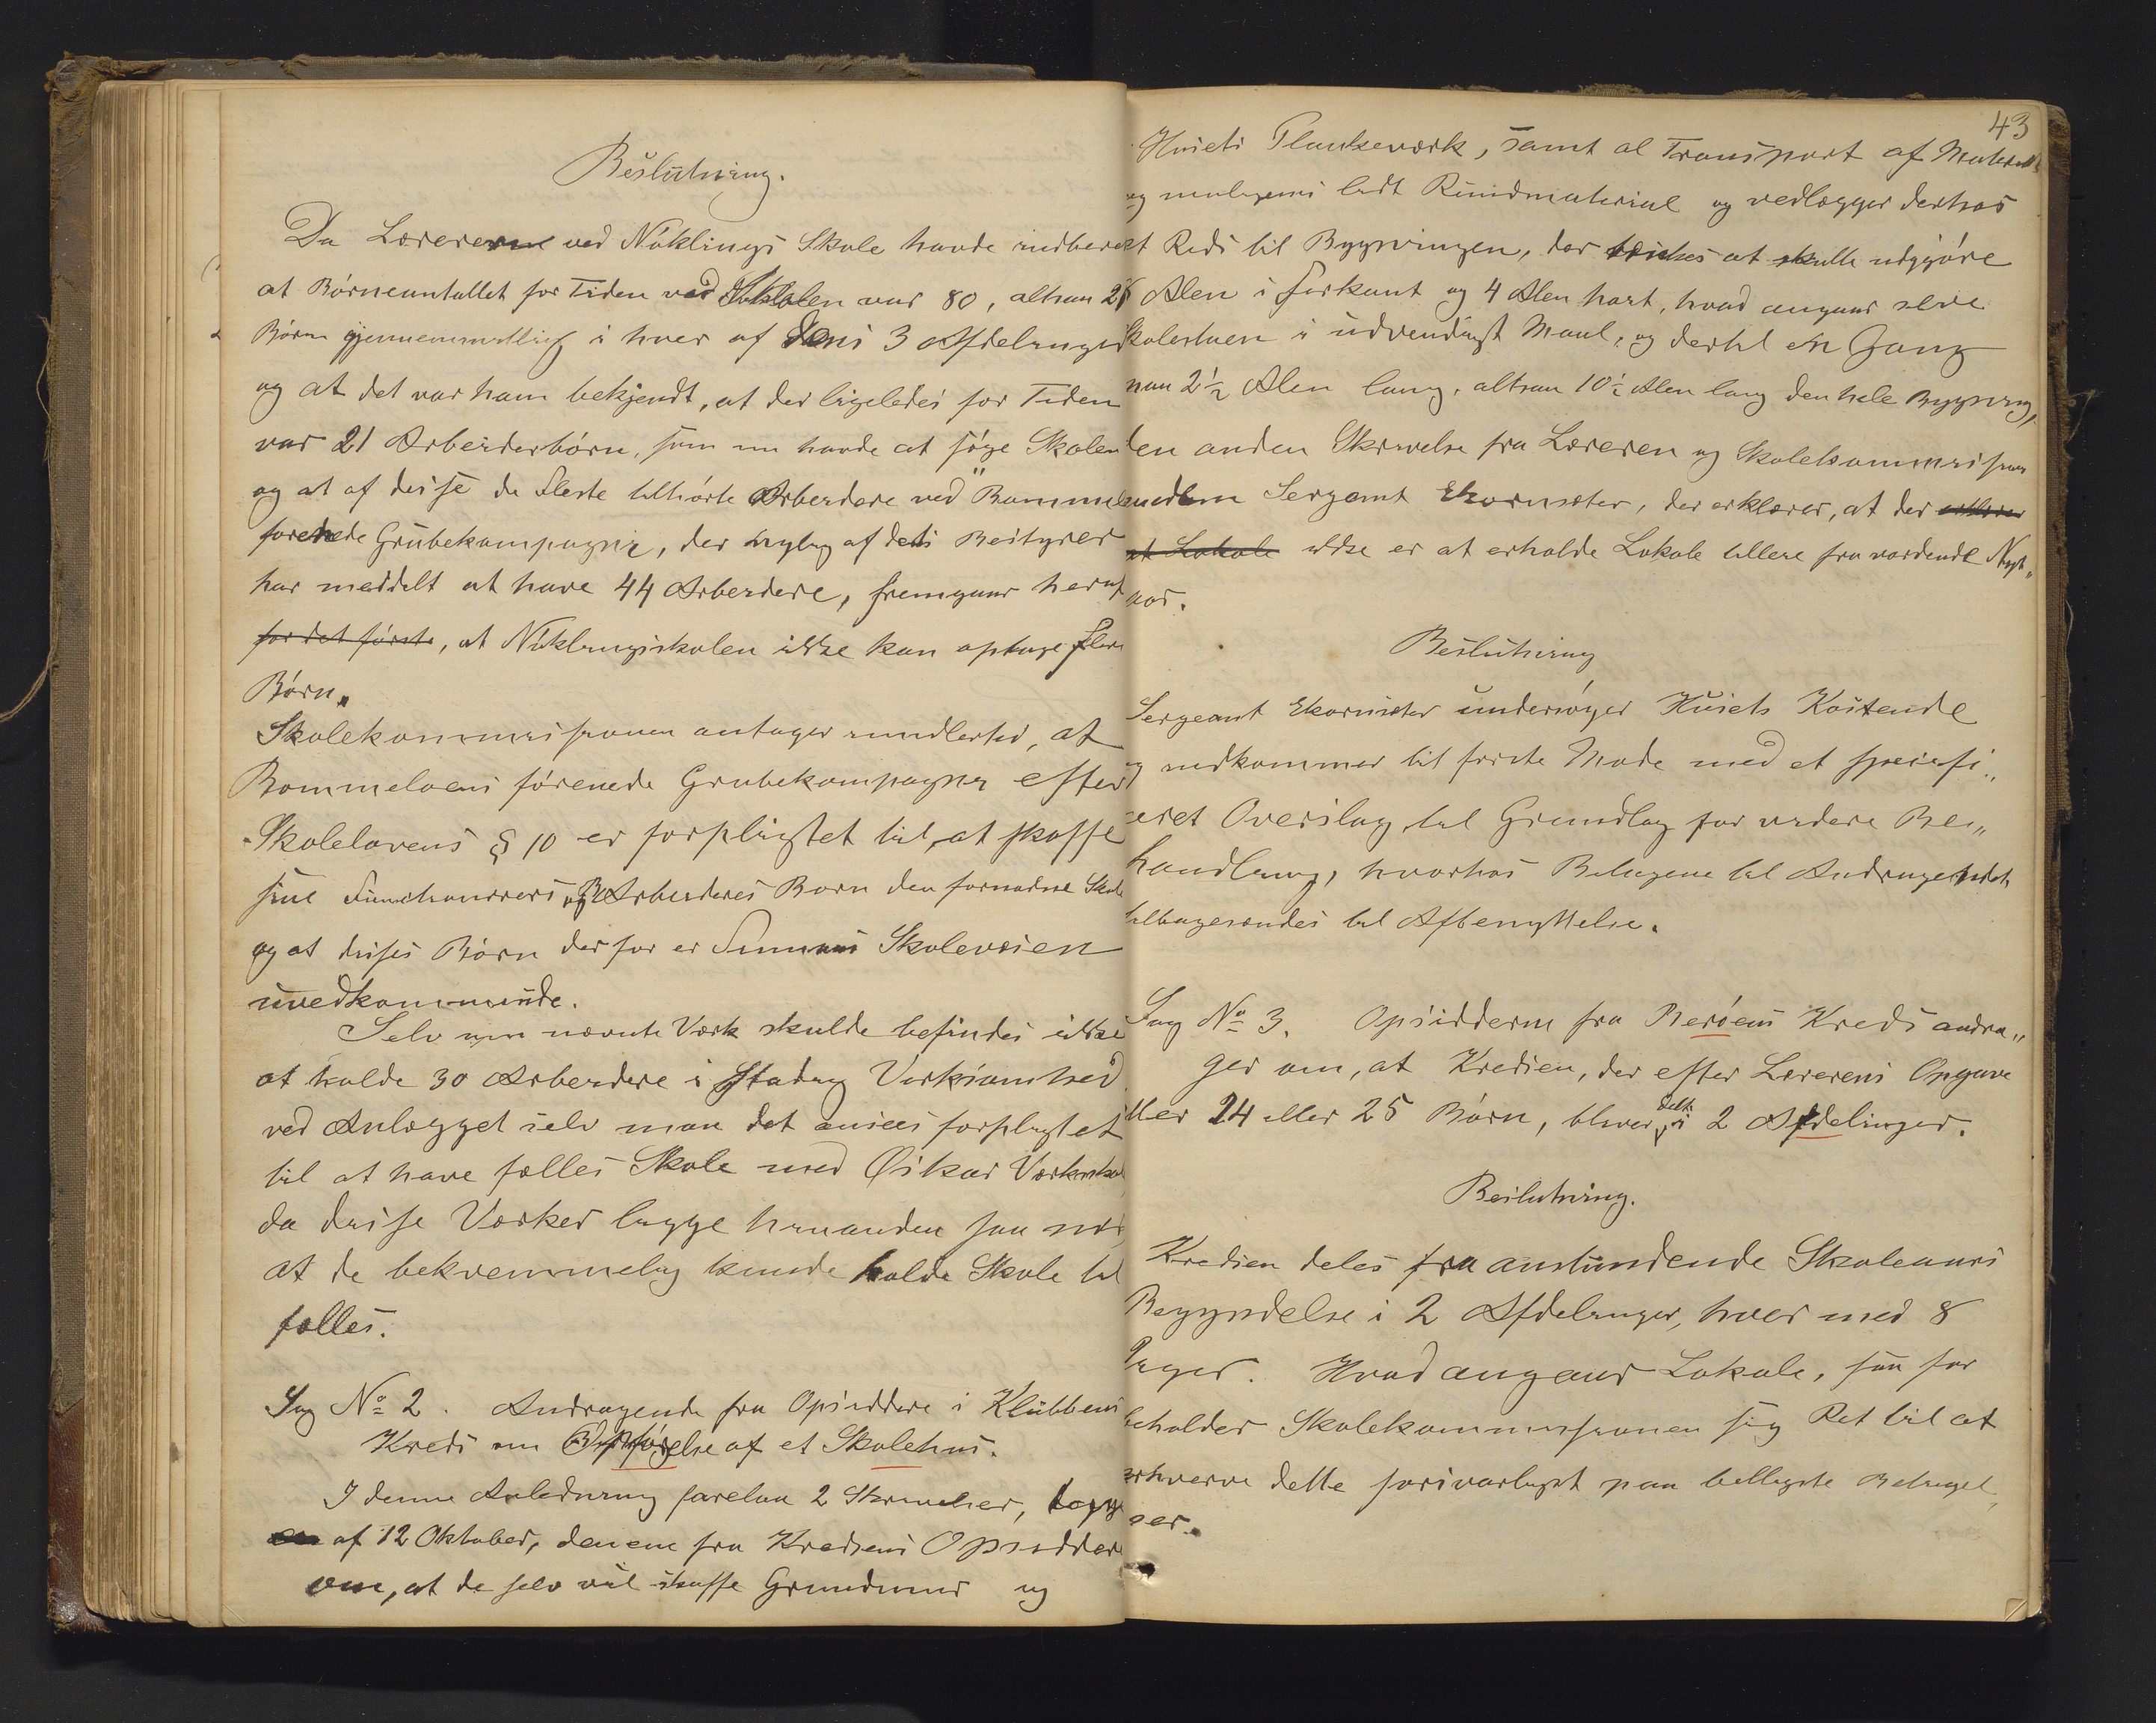 Beslutning.
Da Læreren ved Nöklings Skole havde indberet
at Börneantallet for Tiden ved Skolen var 80, altsaa 26
Börn gjennemsnitlig i hver af dens 3 Afdelinger
og at det var ham bekjendt, at der ligeledes for Tiden
var 21 Arbeiderbörn, som nu havde at söge Skolen
og at af disse de Fleste tilhörte Arbeidere ved "Bommel
forenede Grubekompagni, der nylig af dets Bestyrer
har meddelt at have 44 Arbeidere, fremgaar heraf
for det förste, at Nöklingskolen ikke kan optage flere
Börn.
Skolekommissionen antager imidlertid, at
Bommeloens förenede Grubekompagni efter
Skolelovens § 10 er forpligtet til at skaffe
sine Functionærers og Arbeideres Born den fornødne Skole
og at disses Börn derfor er Skolevæsen
uvedkommende.
Selv om nævnte Værk skulde befindes ikke
at holde 30 Arbeidere i stadig Virksomhed
ved Anlægget selv maa det ansees forpligtet
til at have fælles Skole med Oskar Værkskole
da disse Værker ligge hinanden saa nær,
at de bekvemmelig kunde holde Skole til
fælles.
Sag No 2. Andragende fra Opsiddere i Klubbens
Kreds om Opförelse af et Skolehus.
I denne Anledning forelaa 2 Skrivelser, begge
af 12 Oktober, den ene fra Kredsens Opsiddere
om, at de selv vil skaffe Grundmur og
43
Husets Plankeværk, samt al Transport af Materiale
og muligens lidt Rundmateriale og vedlægger derhos
et Rids til Bygningen, der tænkes at skulle udgjöre
8 Alen i Firkant og 4 Alen høit, hvad angaar selve
Skolestuen i udvendigt Maal, og dertil en Gang
paa 2½ Alen lang, altsaa 10½ Alen lang den hele Bygning,
den anden Skrivelse fra Læreren og Skolekommissions
medlem Sergeant Ekornsæter, der erklærer, at der erklærer
at Lokale ikke er at erholde Lokale tilleie fra vordende Nyt„
aar.
Beslutning
Sergeant Ekornsæter undersöger Husets Kostende
og indkommer til første Møde med et specifi„
ceret Overslag til Grundlag for videre Be„
handling, hvorhos Bilagene til Andragendet
tilbagesendes til Afbenyttelse.
Sag No 3. Opsidderne fra Beröens Kreds andra„
ger om, at Kredsen, der efter Lærerens Opgave
tæller 24 eller 25 Börn, bliver delt i 2 Afdelinger.
Beslutning.
Kredsen deles fra anstundende Skoleaars
Begyndelse i 2 Afdelinger, hver med 8
Uger. Hvad angaar Lokale, saa for
beholder Skolekommissionen sig Ret til at
erhverve dette forsvarligst paa billigste Betingel„
ser.